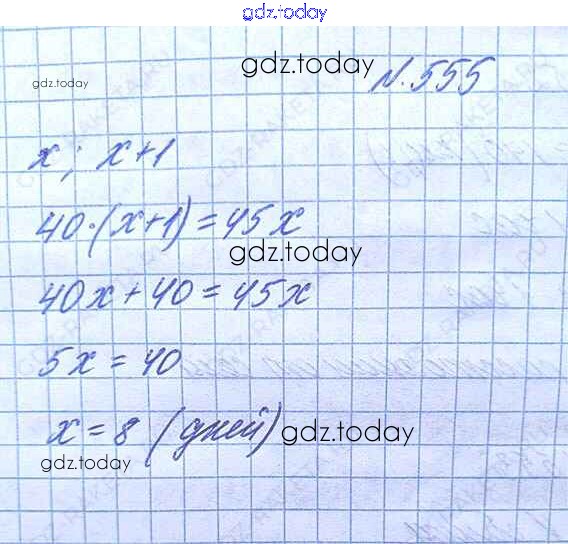 gdz.today
gdz.today
gdz.today
N.555
x; x+1
40·(x+1)=45x
gdz.today
40x+40=45x
5x=40
x=8 (дней)
gdz.today
gdz.today